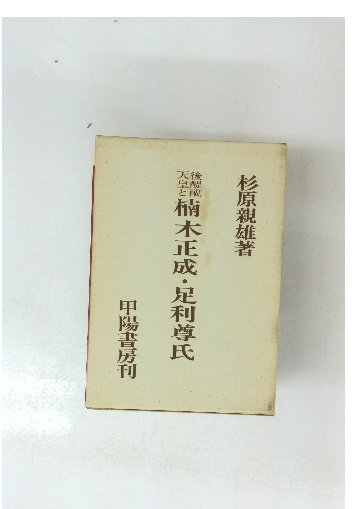 杉原親雄著
後醍醐
天皇と
楠木正成・足利尊氏
甲陽書房刊